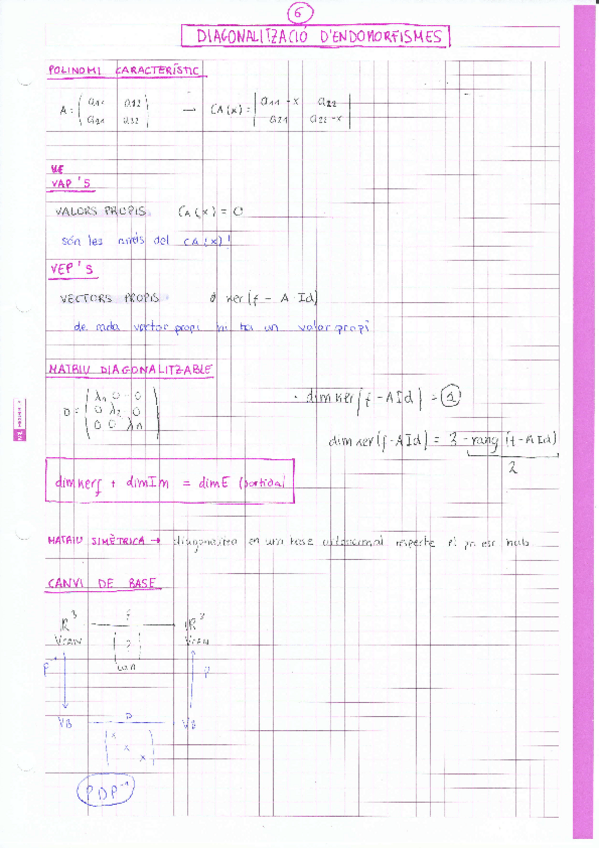 6
DIAGONALITZACIÓ D'ENDOMORFISMES
POLINOMI CARACTERÍSTIC
A = ( a11 a12 / a21 a22 ) → CA(x) = | a11 - x a22 / a21 a22 - x |
VAP'S
VALORS PROPIS. CA(x) = 0
són les arrels del CA(x)!
VEP'S
VECTORS PROPIS. ker(f - A Id)
de cada vector propi hi ha un valor propi
MATRIU DIAGONALITZABLE
D = ( λ1 0 0 / 0 λ2 0 / 0 0 λn )
· dim ker(f - A Id) = 1
dim ker(f - A Id) = 3 - rang(f - A Id)
2
dim ker f + dim Im = dim E (partida)
MATRIU SIMÈTRICA → diagonalitza en una base ortonormal respecte el
CANVI DE BASE
ℝ³ f ℝ³
VCAN ? VCAN
can
P P
VB D VB
x
x
x
PDP⁻¹